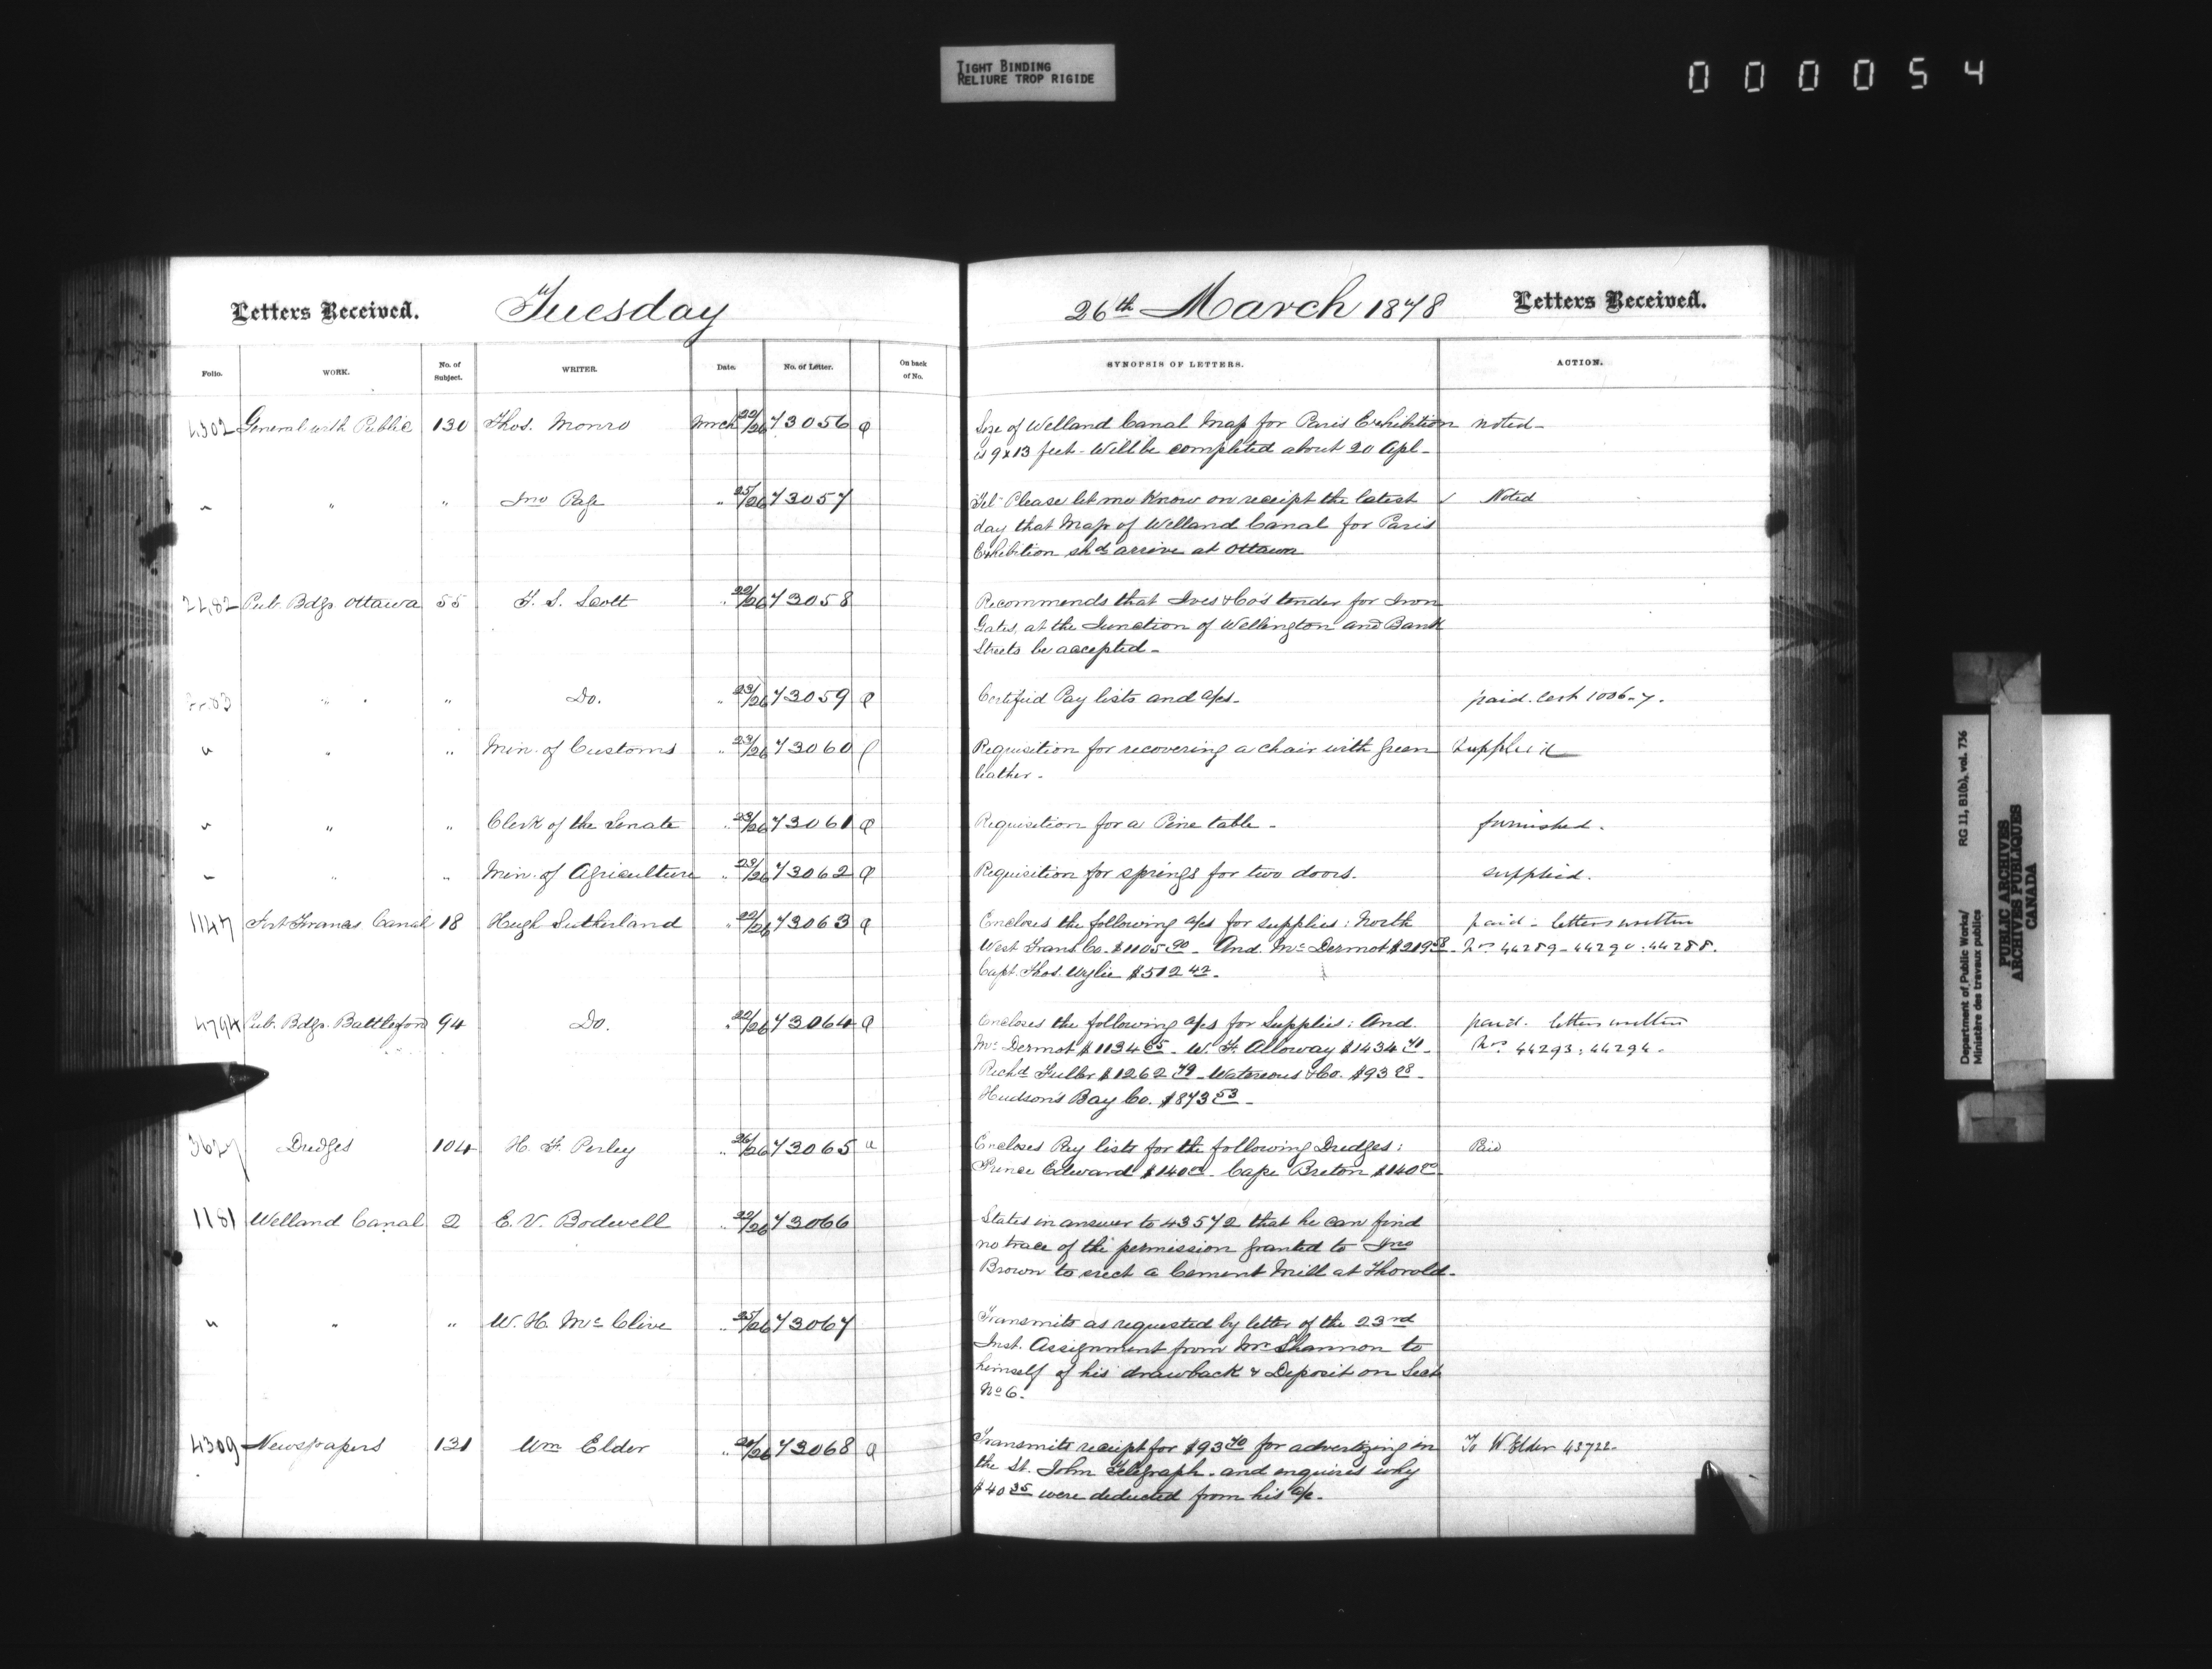 TIGHT BINDING
RELIURE TROP RIGIDE
000054
Letters Received. Tuesday 26th March 1878 Letters Received.
Folio. WORK. No. of Subject. WRITER. Date. No. of Letter. On back of No. SYNOPSIS OF LETTERS. ACTION.
4302 General with Public 130 Thos. Monro Mrch 22/26 73056 Size of Welland Canal Map for Paris Exhibition noted -
is 9 x 13 feet - Will be completed about 20 Apl -
" " " Jno Page " 25/26 73057 Tel - Please let me know on receipt the latest Noted
day that Map of Welland Canal for Paris
Exhibition shd arrive at Ottawa
Pub. Bdgs Ottawa 55 T. S. Scott " 22/26 73058 Recommends that Ives & Co's tender for Iron
Gates, at the Junction of Wellington and Bank
Streets be accepted -
" " " Do. " 23/26 73059 Certified Pay lists and a/cs - paid. Cert 1006-7.
" " " Min. of Customs " 23/26 73060 Requisition for recovering a chair with green Supplied
leather -
" " " Clerk of the Senate " 23/26 73061 Requisition for a Pine table - furnished.
" " " Min. of Agriculture " 23/26 73062 Requisition for springs for two doors. supplied.
1147 Fort Frances Canal 18 Hugh Sutherland " 22/26 73063 Encloses the following a/cs for supplies: North paid - letters written
West Trans. Co. $1105 90 - And. McDermot $219 58 - Nos 44289 - 44290 : 44288.
Capt. Thos. Wylie $512 42 -
4794 Pub. Bdgs. Battleford 94 Do. " 22/26 73064 Encloses the following a/cs for Supplies: And. paid. letters written
McDermot $1134 65 - W. F. Alloway $1434 41 - Nos 44293 : 44294 -
Richd Fuller $1262 79 - Waterous & Co. $93 28 -
Hudson's Bay Co. $873 53 -
3627 Dredges 104 H. F. Perley " 26/26 73065 Encloses Pay lists for the following Dredges: Paid
Prince Edward $140 00 - Cape Breton $140 00
1181 Welland Canal 2 E. V. Bodwell " 22/26 73066 States in answer to 43572 that he can find
no trace of the permission granted to Jno
Brown to erect a Cement Mill at Thorold -
" " " W. H. McClive " 25/26 73067 Transmits as requested by letter of the 23rd
Inst. Assignment from Mr Shannon to
himself of his drawback & Deposit on Sect
No 6.
4309 Newspapers 131 Wm Elder " 20/26 73068 Transmits receipt for $93 40 for advertizing in To W. Elder 43722 -
the St. John Telegraph - and enquires why
$40 35 were deducted from his a/c -
Department of Public Works/ RG 11, B1(b), vol. 736
Ministère des travaux publics
PUBLIC ARCHIVES
ARCHIVES PUBLIQUES
CANADA